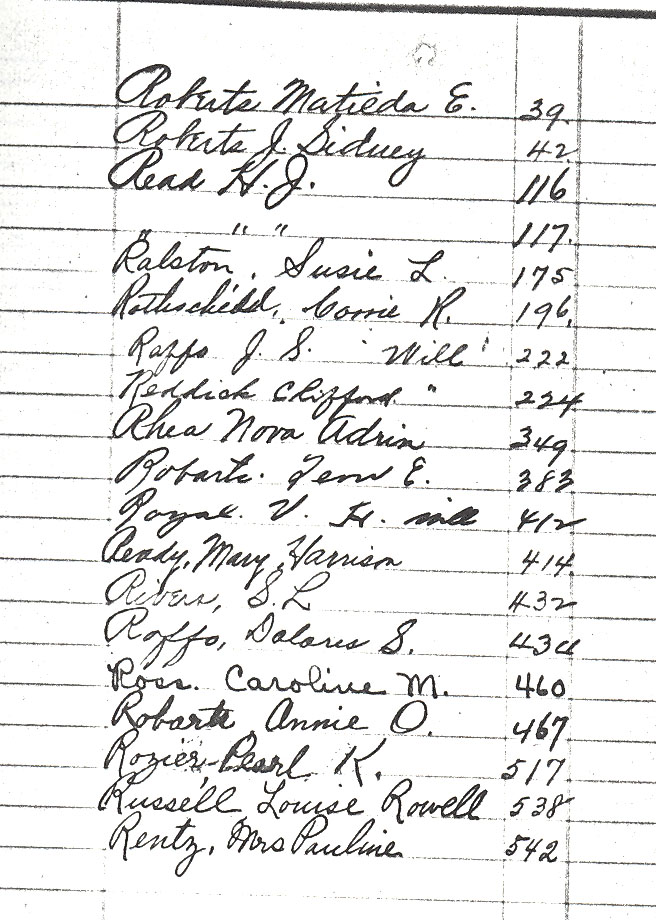 Roberts Matieda E. 39.
Roberts J. Sidney 42
Read H. J. 116
" " " 117.
Ralston, Susie L. 175
Rothschild, Corrie R. 196.
Raffo J. S. "Will" 222
Reddick Clifford. " 224
Rhea Nova Adrin 349
Robarts. E. 383
Royal. V. H. will 412
Ready, Mary Harrison 414
Rivers, S. L 432
Raffo, Dolores S. 434
Ross. Caroline M. 460
Robarts Annie O. 467
Rozier, Pearl K. 517
Russell Louise Rowell 538
Rentz, Mrs Pauline 542